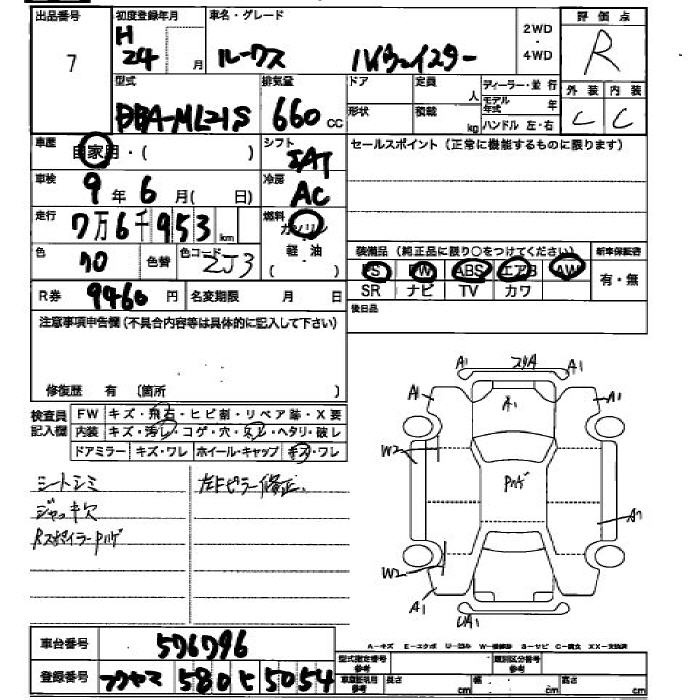 出品番号 初度登録年月 車名・グレード 2WD・4WD 評価点
7 H24 月 ルークス ハイウェイスター R
型式 排気量 ドア 定員 人 ディーラー・並行 外装 内装
DBA-ML21S 660 cc 形状 積載 kg モデル年式 年 ハンドル 左・右 C C
車歴 自家用・( ) シフト IAT セールスポイント(正常に機能するものに限ります)
車検 9年6月( 日) 冷房 AC
走行 7万6千953km 燃料 ガソリン
軽油
・( )
色 クロ 色替 色コード ZJ3
装備品(純正品に限り○をつけてください) 新車保証書
PS PW ABS エアB AW 有・無
SR ナビ TV カワ
R券 9460円 名変期限 月 日
後日品
注意事項申告欄(不具合内容等は具体的に記入して下さい)
修復歴 有 (箇所 )
検査員記入欄 FW キズ・飛石・ヒビ割・リペア跡・X要
内装 キズ・汚レ・コゲ・穴・スレ・ヘタリ・破レ
ドアミラー キズ・ワレ ホイール・キャップ キズ・ワレ
シートシミ
ジャッキ欠
RスポイラーPハゲ
左Fピラー修正.
A1 A1
A1 A1 A1
W2 Pハゲ
A1
W2
A1 UA1
車台番号 576796
登録番号 フクヤマ 580 ヒ 5054
A-キズ E-エクボ U-凹み W-補修跡 S-サビ C-腐食 XX-交換済
型式指定番号 参考 類別区分番号 参考
車庫証明用 参考 長さ cm 幅 cm 高さ cm